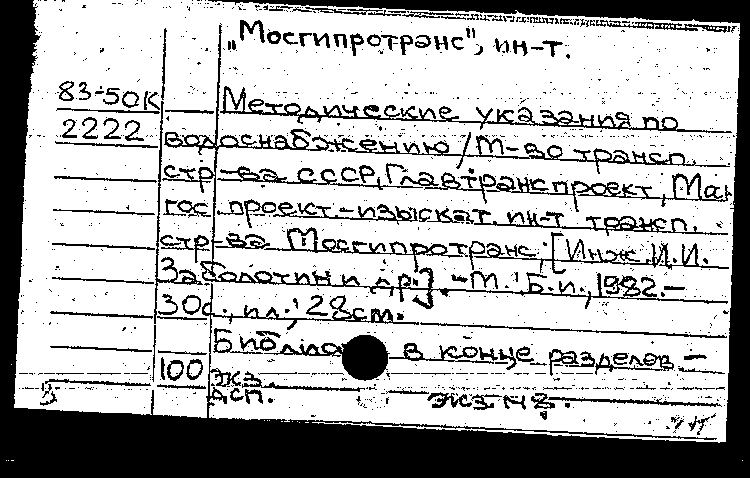 „Мосгипротранс", ин-т.
83-50К Методические указания по
2222 водоснабжению / М-во трансп.
стр-ва СССР, Главтранспроект, Мос
гос. проект.-изыскат. ин-т трансп.
стр-ва Мосгипротранс; [Инж. И.И.
Заболотин и др.]. - М.: Б.и., 1982.-
30с., ил.; 28см.
Библиогр в конце разделов -
100 экз.
Дсп. экз №